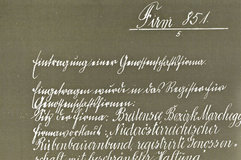 Firm 851
5
Eintragung einer Genossenschaftsfirma.
Eingetragen wurde in das Register für
Genossenschaftsfirmen:
Sitz der Firma: Breitensee Bezirk Marchegg
Firmawortlaut: Niederösterreichischer
Rübenbauernbund, registrierte Genossen-
schaft mit beschränkter Haftung